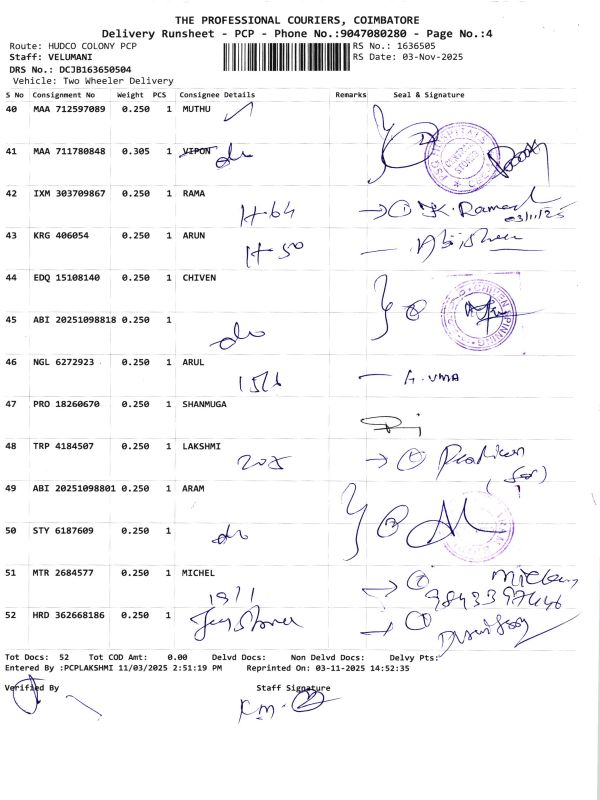 THE PROFESSIONAL COURIERS, COIMBATORE
Delivery Runsheet - PCP - Phone No.:9047080280 - Page No.:4
Route: HUDCO COLONY PCP RS No.: 1636505
Staff: VELUMANI RS Date: 03-Nov-2025
DRS No.: DCJB163650504
Vehicle: Two Wheeler Delivery
S No Consignment No Weight PCS Consignee Details Remarks Seal & Signature
40 MAA 712597089 0.250 1 MUTHU
41 MAA 711780848 0.305 1 VIPON
42 IXM 303709867 0.250 1 RAMA
H-64 K. Ramesh
03/11/25
43 KRG 406054 0.250 1 ARUN
H-50
44 EDQ 15108140 0.250 1 CHIVEN
45 ABI 20251098818 0.250 1
46 NGL 6272923 0.250 1 ARUL
47 PRO 18260670 0.250 1 SHANMUGA
48 TRP 4184507 0.250 1 LAKSHMI
205
49 ABI 20251098801 0.250 1 ARAM
50 STY 6187609 0.250 1
51 MTR 2684577 0.250 1 MICHEL
1971
52 HRD 362668186 0.250 1
Tot Docs: 52 Tot COD Amt: 0.00 Delvd Docs: Non Delvd Docs: Delvy Pts:
Entered By :PCPLAKSHMI 11/03/2025 2:51:19 PM Reprinted On: 03-11-2025 14:52:35
Verified By Staff Signature